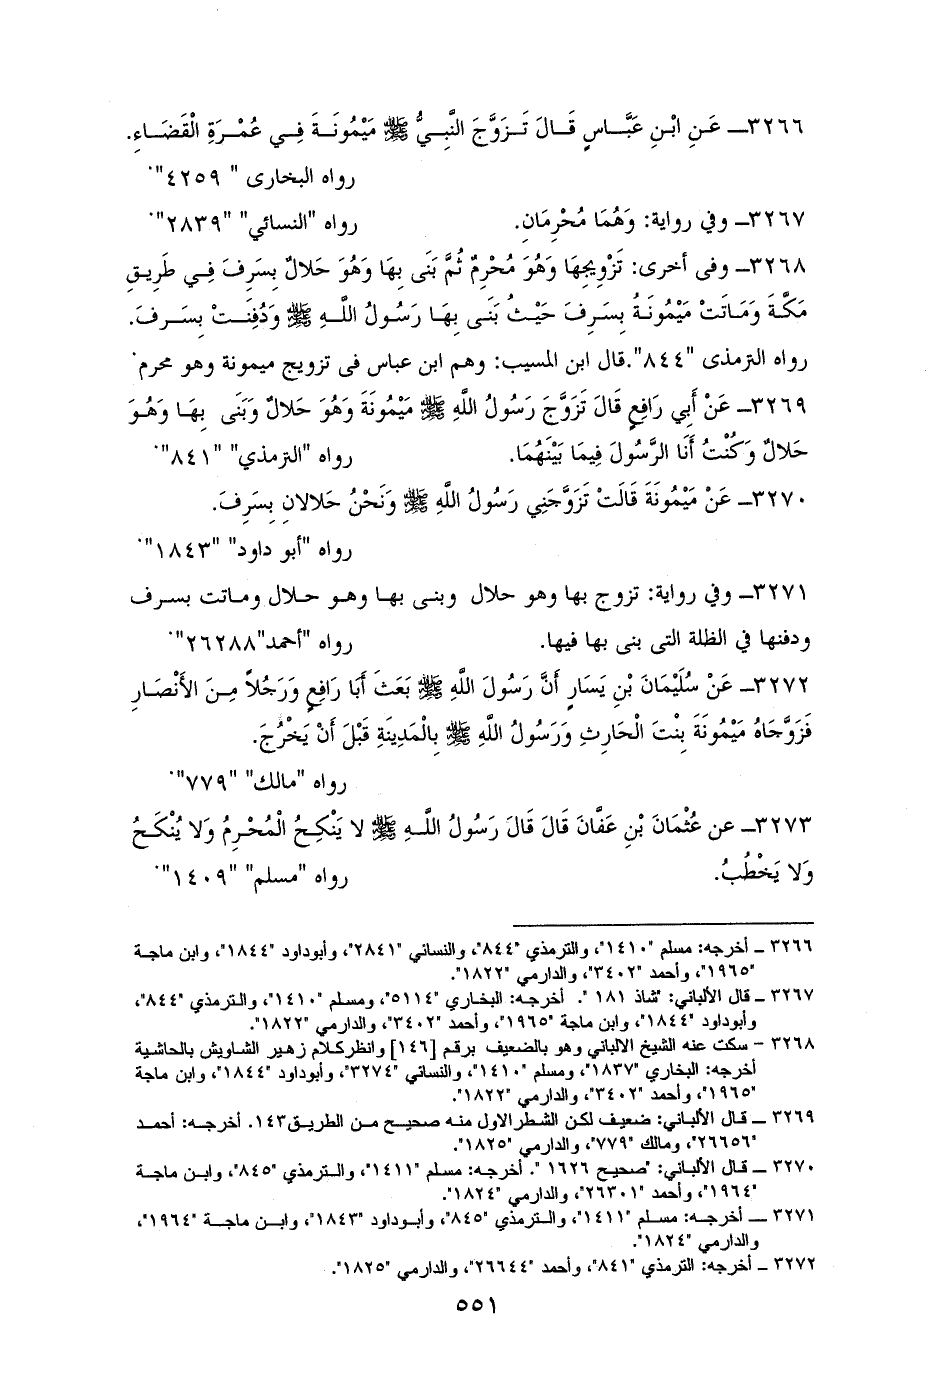 ٣٢٦٦ــ عَنِ ابْنِ عَبَّــاسٍ قَــالَ تَــزَوَّجَ النَّبِيُّ ﷺ مَيْمُونَــةَ فِــي عُمْـرَةِ الْقَضَــاءِ.
رواه البخارى " ٤٢٥٩".
٣٢٦٧ــ وفي رواية: وَهُمَا مُحْرِمَانِ. رواه "النسائي" "٢٨٣٩".
٣٢٦٨ــ وفى أخرى: تَزْوِيجِهَا وَهُوَ مُحْرِمٌ ثُمَّ بَنَى بِهَا وَهُوَ حَلالٌ بِسَرِفَ فِـي طَرِيقِ
مَكَّةَ وَمَـاتَتْ مَيْمُونَـةُ بِسَرِفَ حَيْـثُ بَنَى بِهَـا رَسُـولُ اللَّـهِ ﷺ وَدُفِنَـتْ بِسَـرِفَ.
رواه الترمذى "٨٤٤".قال ابن المسيب: وهم ابن عباس فى تزويج ميمونة وهو محرم.
٣٢٦٩ــ عَنْ أَبِي رَافِعٍ قَالَ تَزَوَّجَ رَسُولُ اللَّهِ ﷺ مَيْمُونَةَ وَهُوَ حَلالٌ وَبَنَى بِهَـا وَهُـوَ
حَلالٌ وَكُنْتُ أَنَا الرَّسُولَ فِيمَا بَيْنَهُمَا. رواه "الترمذي" "٨٤١".
٣٢٧٠ــ عَنْ مَيْمُونَةَ قَالَتْ تَزَوَّجَنِي رَسُولُ اللَّهِ ﷺ وَنَحْنُ حَلالانِ بِسَرِفَ.
رواه "أبو داود" "١٨٤٣".
٣٢٧١ــ وفي رواية: تزوج بها وهو حلال وبنى بهـا وهـو حـلال ومـاتت بسـرف
ودفنها في الظلة التى بنى بها فيها. رواه "أحمد"٢٦٢٨٨".
٣٢٧٢ــ عَنْ سُلَيْمَانَ بْنِ يَسَارٍ أَنَّ رَسُولَ اللَّهِ ﷺ بَعَثَ أَبَا رَافِعٍ وَرَجُلاً مِـنَ الأَنْصَـارِ
فَزَوَّجَاهُ مَيْمُونَةَ بِنْتَ الْحَارِثِ وَرَسُولُ اللَّهِ ﷺ بِالْمَدِينَةِ قَبْلَ أَنْ يَخْرُجَ.
رواه "مالك" "٧٧٩".
٣٢٧٣ــ عن عُثْمَانَ بْنِ عَفَّانَ قَالَ قَالَ رَسُولُ اللَّـهِ ﷺ لا يَنْكِـحُ الْمُحْرِمُ وَلا يُنْكَـحُ
وَلا يَخْطُبُ. رواه "مسلم" "١٤٠٩".
٣٢٦٦ ــ أخرجه: مسلم "١٤١٠"، والترمذي "٨٤٤"، والنسائي "٢٨٤١"، وأبوداود "١٨٤٤"، وابن ماجـة
"١٩٦٥"، وأحمد "٣٤٠٢"، والدارمي "١٨٢٢".
٣٢٦٧ ــ قال الألباني: "شاذ ١٨١ ". أخرجه: البخاري "٥١١٤"، ومسلم "١٤١٠"، والترمذي "٨٤٤"،
وأبوداود "١٨٤٤"، وابن ماجة "١٩٦٥"، وأحمد "٣٤٠٢"، والدارمي "١٨٢٢".
٣٢٦٨ - سكت عنه الشيخ الالباني وهو بالضعيف برقم [١٤٦] وانظركلام زهير الشاويش بالحاشية
أخرجه: البخاري "١٨٣٧"، ومسلم "١٤١٠"، والنسائي "٣٢٧٤"، وأبوداود "١٨٤٤"، وابن ماجة
"١٩٦٥"، وأحمد "٣٤٠٢"، والدارمي "١٨٢٢".
٣٢٦٩ ــ قـال الألباني: ضعيف لكن الشطرالاول منه صحيح مـن الطريق١٤٣. أخرجه: أحمـد
"٢٦٦٥٦"، ومالك "٧٧٩"، والدارمي "١٨٢٥".
٣٢٧٠ ــ قـال الألباني: "صحيح ١٦٢٦ ". أخرجه: مسلم "١٤١١"، والـترمذي "٨٤٥"، وابـن ماجـة
"١٩٦٤"، وأحمد "٢٦٣٠١"، والدارمي "١٨٢٤".
٣٢٧١ ــ أخرجـه: مسـلم "١٤١١"، والـترمذي "٨٤٥"، وأبـوداود "١٨٤٣"، وابـن ماجـة "١٩٦٤"،
والدارمي "١٨٢٤".
٣٢٧٢ ــ أخرجه: الترمذي "٨٤١"، وأحمد "٢٦٦٤٤"، والدارمي "١٨٢٥".
٥٥١